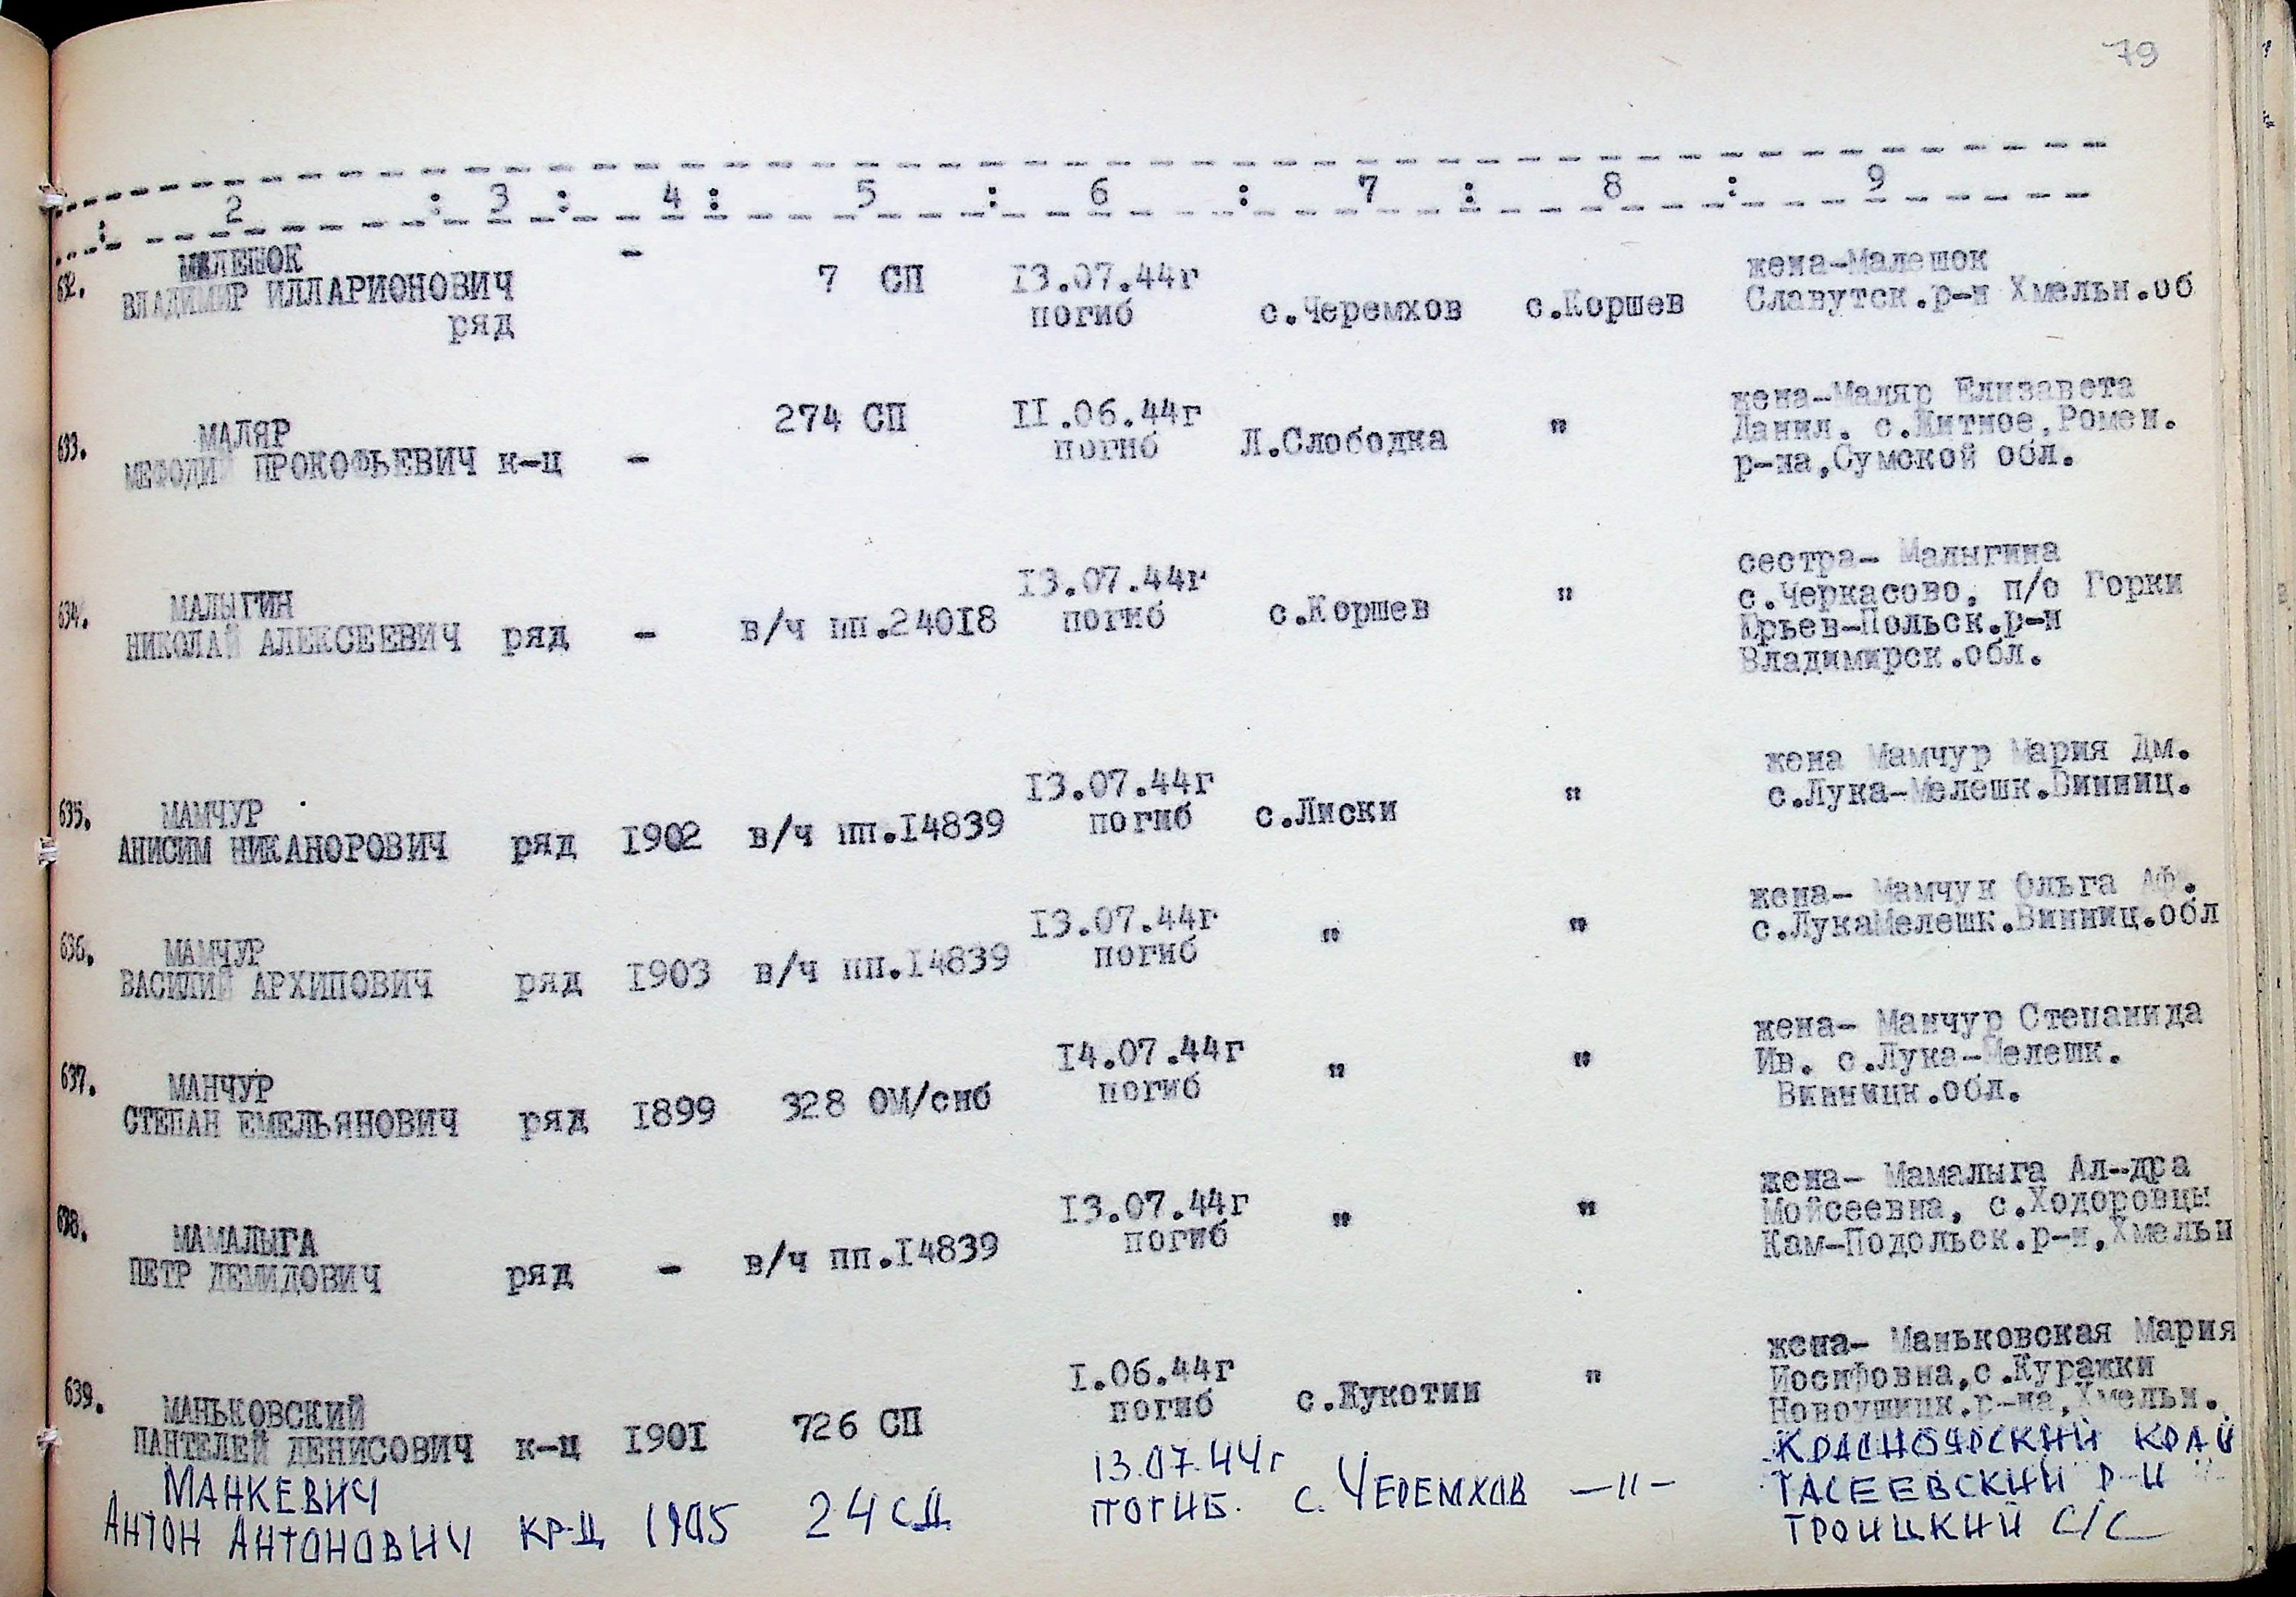 79
: 2 : 3 : 4 : 5 : 6 : 7 : 8 : 9
632. МАЛЕШОК -
ВЛАДИМИР ИЛЛАРИОНОВИЧ
ряд
7 СП
13.07.44г
погиб
с.Черемхов
с.Коршев
жена-Малешок
Славутск.р-н Хмельн.об
633. МАЛЯР
МЕФОДИЙ ПРОКОФЬЕВИЧ к-ц -
274 СП
II.06.44г
погиб
Л.Слободка
"
жена-Маляр Елизавета
Данил. с.Житное,Ромен.
р-на,Сумской обл.
634. МАЛЫГИН
НИКОЛАЙ АЛЕКСЕЕВИЧ ряд -
в/ч пп.24018
13.07.44г
погиб
с.Коршев
"
сестра- Малыгина
с.Черкасово, п/о Горки
Юрьев-Польск.р-н
Владимирск.обл.
635. МАМЧУР
АНИСИМ НИКАНОРОВИЧ ряд 1902
в/ч пп.14839
13.07.44г
погиб
с.Лиски
"
жена Мамчур Мария Дм.
с.Лука-Мелешк.Винниц.
636. МАМЧУР
ВАСИЛИЙ АРХИПОВИЧ ряд 1903
в/ч пп.14839
13.07.44г
погиб
"
"
жена- Мамчук Ольга Аф.
с.ЛукаМелешк.Винниц.обл
637. МАНЧУР
СТЕПАН ЕМЕЛЬЯНОВИЧ ряд 1899
328 ОМ/снб
14.07.44г
погиб
"
"
жена- Манчур Степанида
Ив. с.Лука-Мелешк.
Винницк.обл.
638. МАМАЛЫГА
ПЕТР ДЕМИДОВИЧ ряд -
в/ч пп.14839
13.07.44г
погиб
"
"
жена- Мамалыга Ал-дра
Мойсеевна, с.Ходоровцы
Кам-Подольск.р-н,Хмельн
639. МАНЬКОВСКИЙ
ПАНТЕЛЕЙ ДЕНИСОВИЧ к-ц 1901
726 СП
1.06.44г
погиб
с.Жукотин
"
жена- Маньковская Мария
Иосифовна,с.Куражки
Новоушицк.р-на,Хмельн.
МАНКЕВИЧ
АНТОН АНТОНОВИЧ КР-Ц 1905
24 СД
13.07.44г
ПОГИБ.
с. ЧЕРЕМХОВ
-"-
КРАСНОЯРСКИЙ КРАЙ
ТАСЕЕВСКИЙ Р-Н
ТРОИЦКИЙ С/С